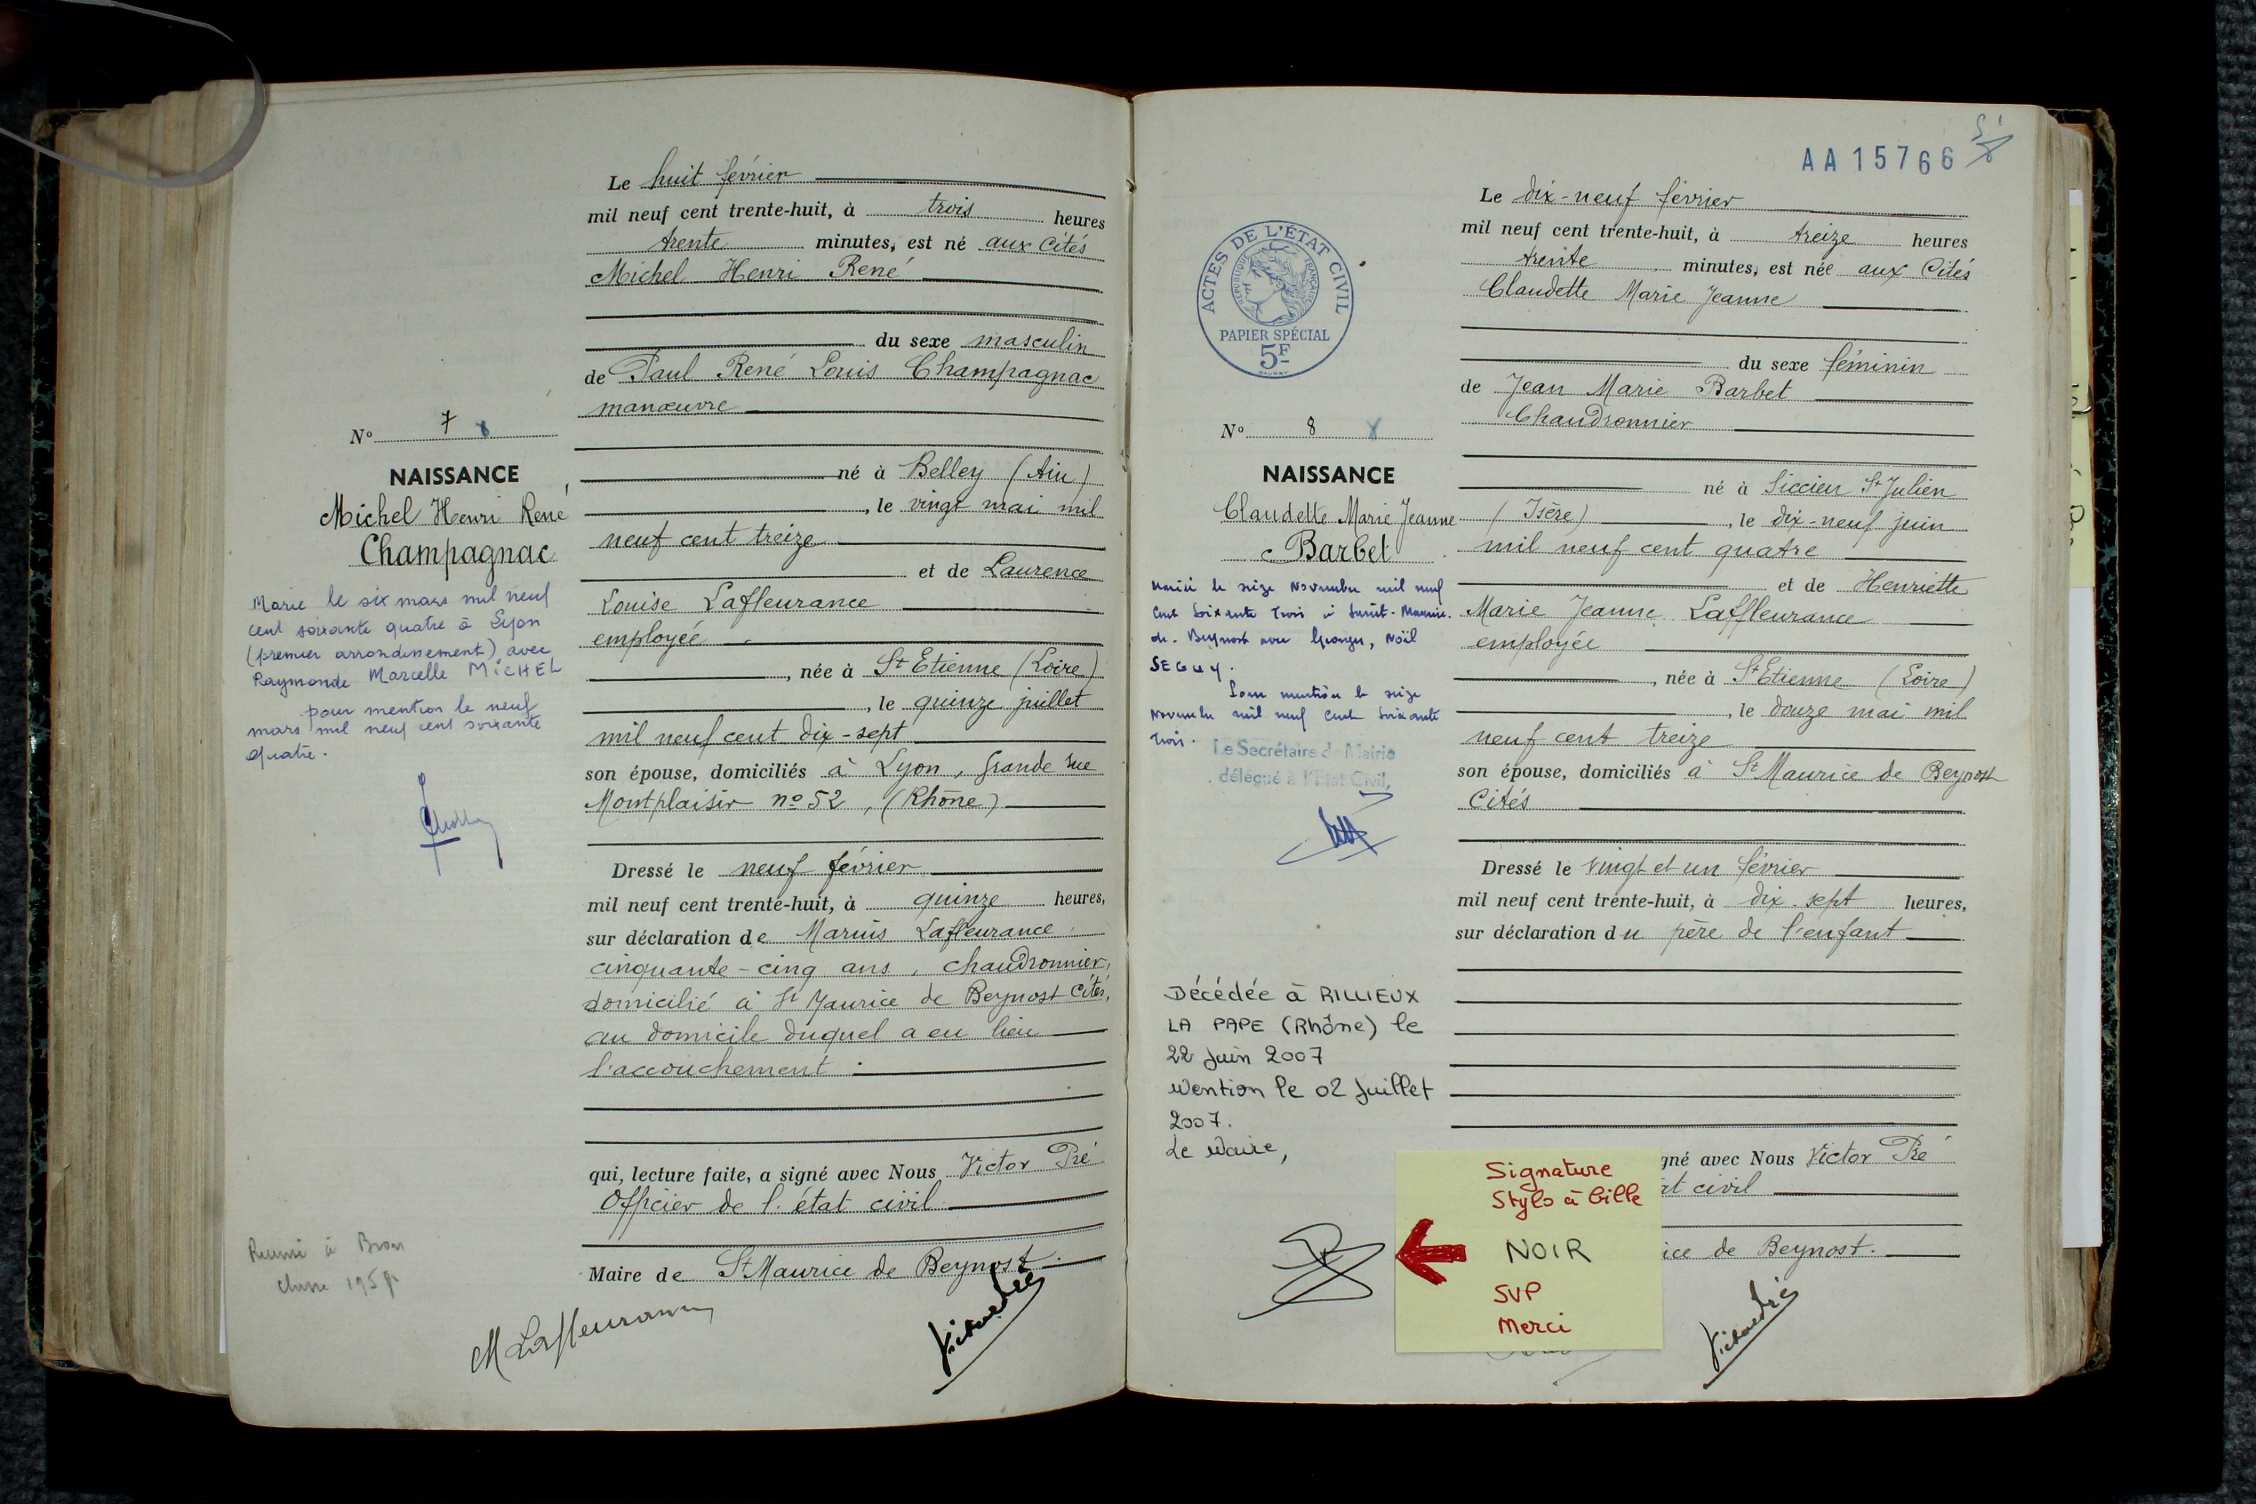 Le huit février
mil neuf cent trente-huit, à trois heures
trente minutes, est né aux Cités
Michel Henri René
du sexe masculin
de Paul René Louis Champagnac
manœuvre
né à Belley (Ain)
, le vingt mai mil
neuf cent treize
et de Laurence
Louise Laffleurance
employée
, née à St Etienne (Loire)
, le quinze juillet
mil neuf cent dix-sept
son épouse, domiciliés à Lyon, Grande rue
Montplaisir no 52, (Rhône)
Dressé le neuf février
mil neuf cent trente-huit, à quinze heures,
sur déclaration de Marius Laffleurance
cinquante-cinq ans, chaudronnier,
domicilié à St Maurice de Beynost Cités,
au domicile duquel a eu lieu
l'accouchement.
qui, lecture faite, a signé avec Nous Victor Pré
Officier de l'état civil
Maire de St Maurice de Beynost.
M Laffleurance
No 7 8
NAISSANCE
Michel Henri René
Champagnac
Marié le six mars mil neuf
cent soixante quatre à Lyon
(premier arrondissement) avec
Raymonde Marcelle MICHEL
pour mention le neuf
mars mil neuf cent soixante
quatre.
à Bron
classe 195
AA15766
ACTES DE L'ÉTAT CIVIL
RÉPUBLIQUE FRANÇAISE
PAPIER SPÉCIAL
5F
No 8 8
NAISSANCE
Claudette Marie Jeanne
Barbet
Mariée le seize Novembre mil neuf
Cent Soixante Trois à Saint-Maurice-
de-Beynost avec Georges, Noël
SEGUY.
Pour mention le seize
Novembre mil neuf Cent Soixante
Trois.
Le Secrétaire de Mairie
délégué à l'Etat Civil,
Décédée à RILLIEUX
LA PAPE (Rhône) le
22 Juin 2007
Mention le 02 Juillet
2007.
Le Maire,
Le dix-neuf février
mil neuf cent trente-huit, à treize heures
trente minutes, est née aux Cités
Claudette Marie Jeanne
du sexe féminin
de Jean Marie Barbet
Chaudronnier
né à Siccieu St Julien
(Isère), le dix-neuf juin
mil neuf cent quatre
et de Henriette
Marie Jeanne Laffleurance
employée
, née à St Etienne (Loire)
, le douze mai mil
neuf cent treize
son épouse, domiciliés à St Maurice de Beynost
Cités
Dressé le vingt et un février
mil neuf cent trente-huit, à dix-sept heures,
sur déclaration du père de l'enfant
gné avec Nous Victor Pré
at civil
ice de Beynost.
Signature
Stylo à bille
NOIR
SVP
Merci